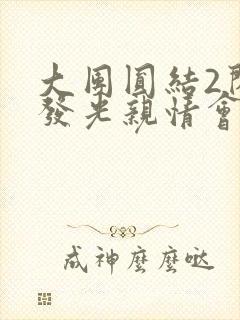 大團圓結2閃
發光親情會
成神麼麼噠